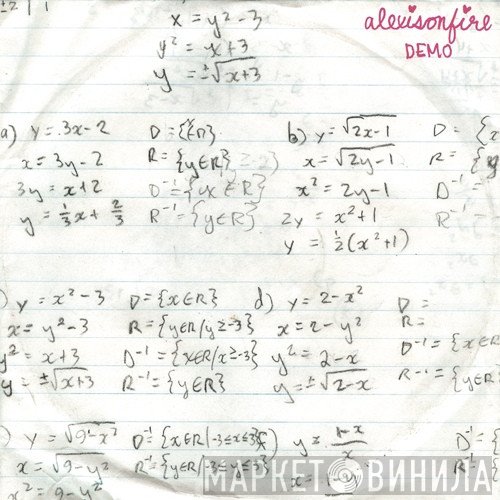 ±2 | 1
x = y² - 3
y² = x+3
y = ±√x+3
alexisonfire
DEMO
a) y = 3x-2 D = {
x = 3y-2 R = {y∈R
3y = x+2 D⁻¹ = {x∈R}
y = ⅓x + ⅔ R⁻¹ = {y∈R}
b) y = √2x-1 D = {x
x = √2y-1 R = {y
x² = 2y-1 D⁻¹ =
2y = x²+1 R⁻¹ =
y = ½(x²+1)
) y = x² - 3 D = {x∈R}
x = y² - 3 R = {y∈R/y≥-3}
y² = x+3 D⁻¹ = {x∈R/x≥-3}
y = ±√x+3 R⁻¹ = {y∈R}
d) y = 2-x² D =
x = 2-y² R =
y² = 2-x D⁻¹ = {x∈R
y = ±√2-x R⁻¹ = {y∈R
) y = √9-x² D⁻¹ = {x∈R|-3≤x≤3}
x = √9-y² R⁻¹ = {y∈R|-3≤y≤3}
x² = 9-y²
y = 1-x/x D⁻¹ = {
x = 1-y
МАРКЕТ ВИНИЛА